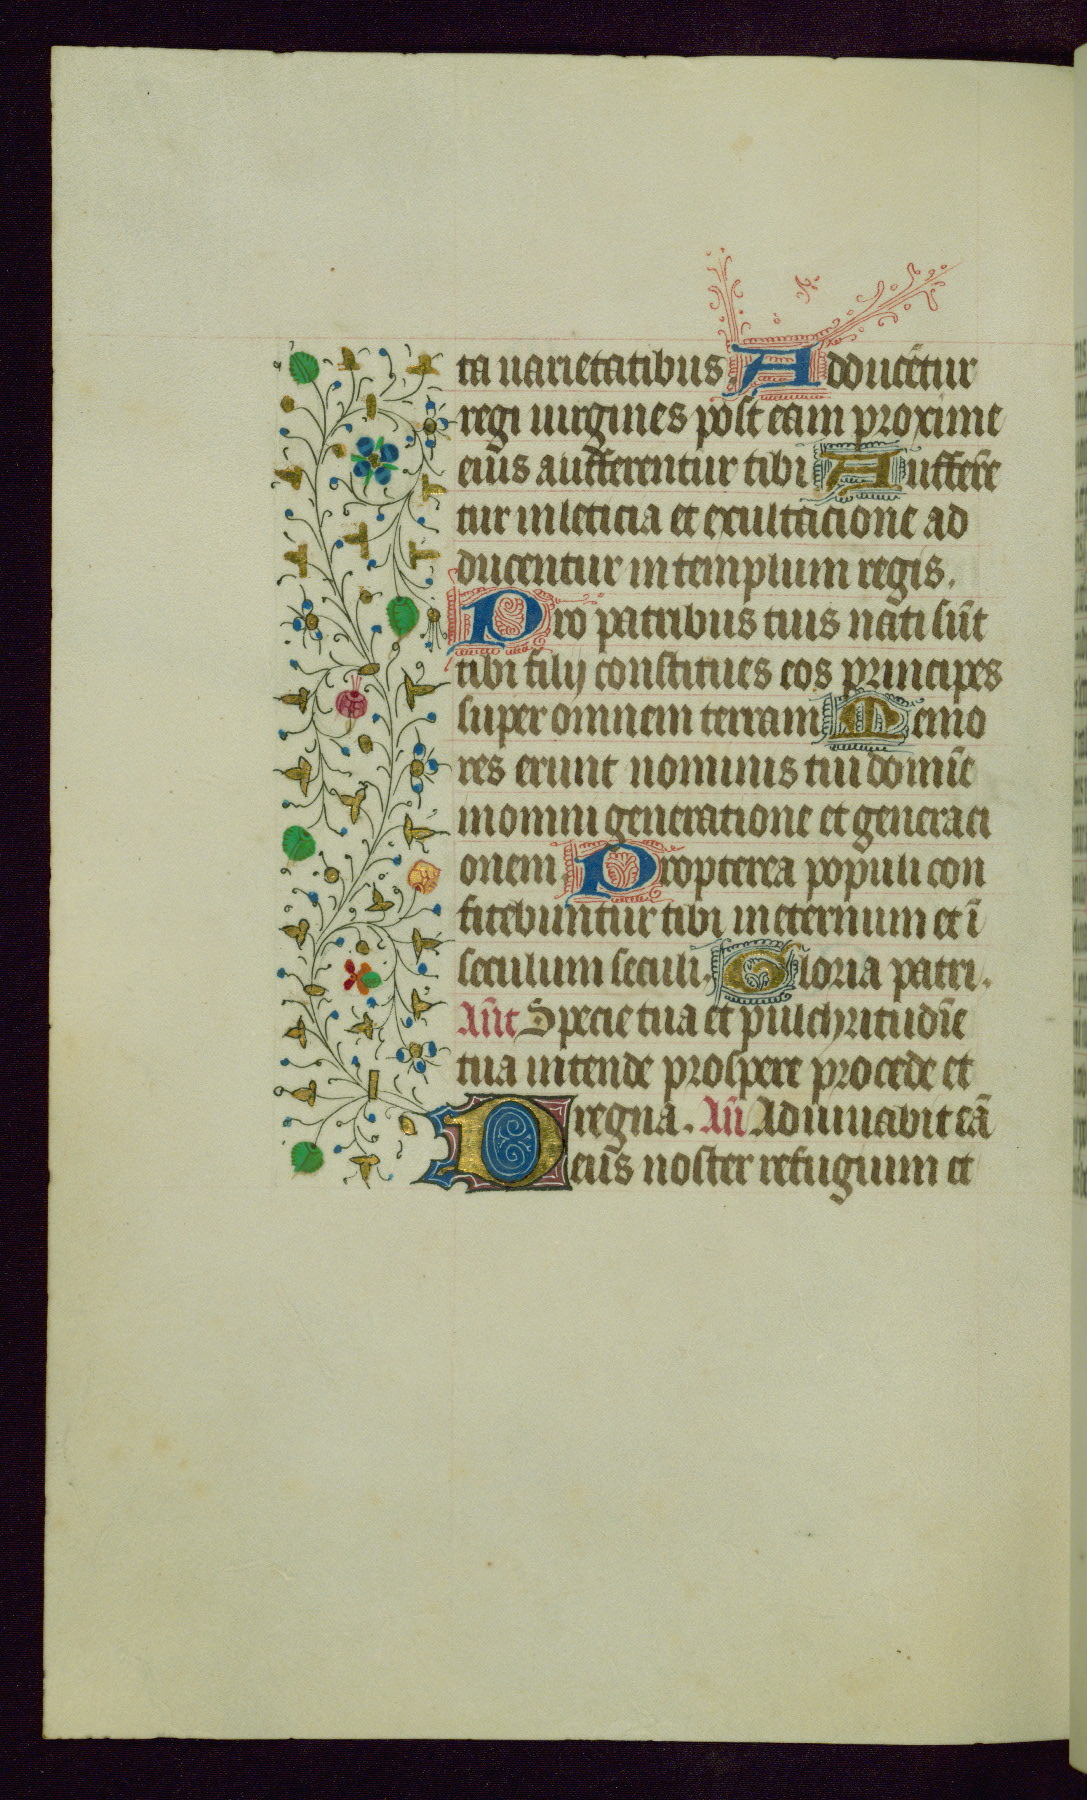 ta uarietatibus. Adducētur
regi uirgines post eam proxime
eius aufferentur tibi Aufferē
tur in leticia et exultacione ad
ducentur in templum regis.
Pro patribus tuis nati sūt
tibi filij constitues eos principes
super omnem terram Memo
res erunt nominis tui domīe
in omni generatione et generaci
onem. Propterea populi con
fitebuntur tibi in eternum et ī
seculum seculi. Gloria patri.
Añt Specie tua et pulchritudīe
tua intende prospere procede et
regna. Añ Adiuuabit eā
Deus noster refugium et